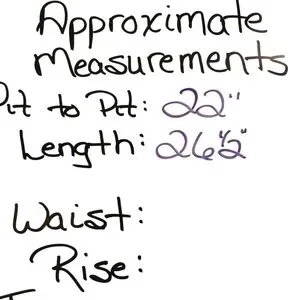 Approximate
Measurements
Pit to Pit: 22"
Length: 26 1/2"
Waist:
Rise: